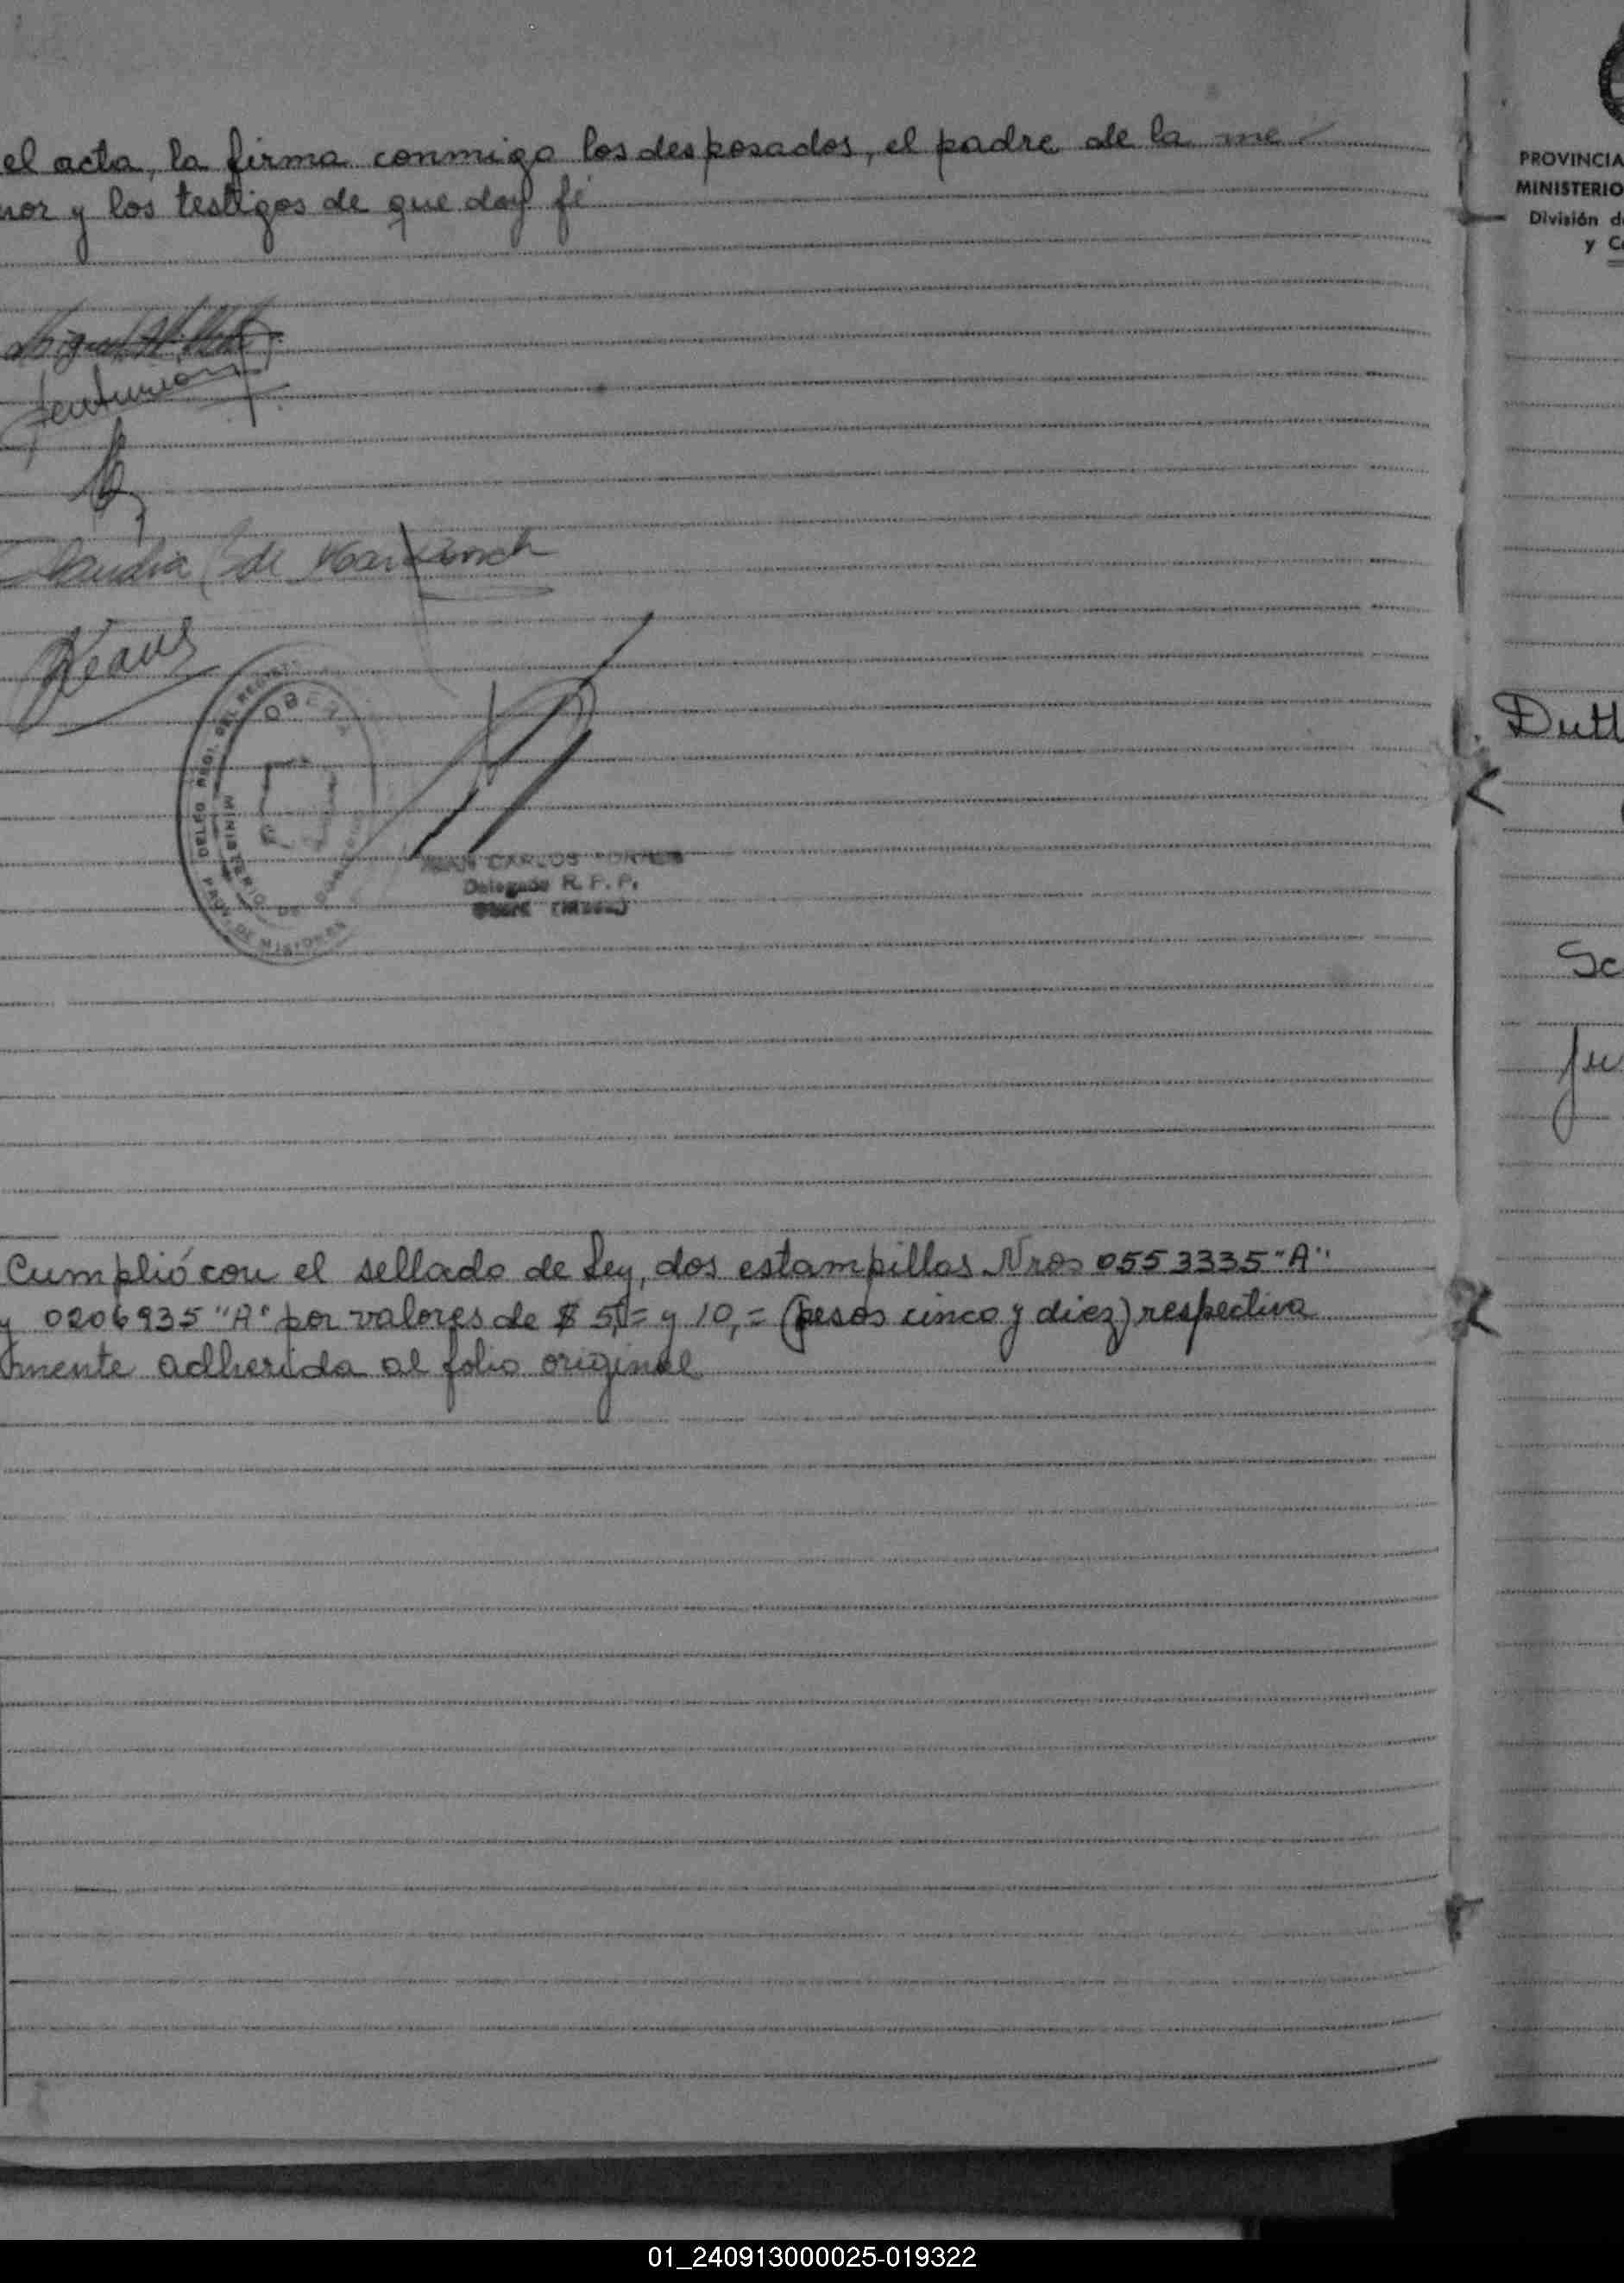 el acta, la firma conmigo los desposados, el padre de la me
nor y los testigos de que doy fé
Claudia de
OBERA
DELEG. REGI. DEL REGIST.
MINISTERIO DE GOBIERNO
PROV. DE MISIONES
JUAN CARLOS
Delegado R. P. P.
Cumplió con el sellado de Ley, dos estampillas Nros 0553335 "A"
y 0206935 "A" por valores de $ 5,= y 10,= (pesos cinco y diez) respectiva
mente adherida al folio original
PROVINCIA
MINISTERIO
División d
y C
Dutt
Sc
Ju
01_240913000025-019322